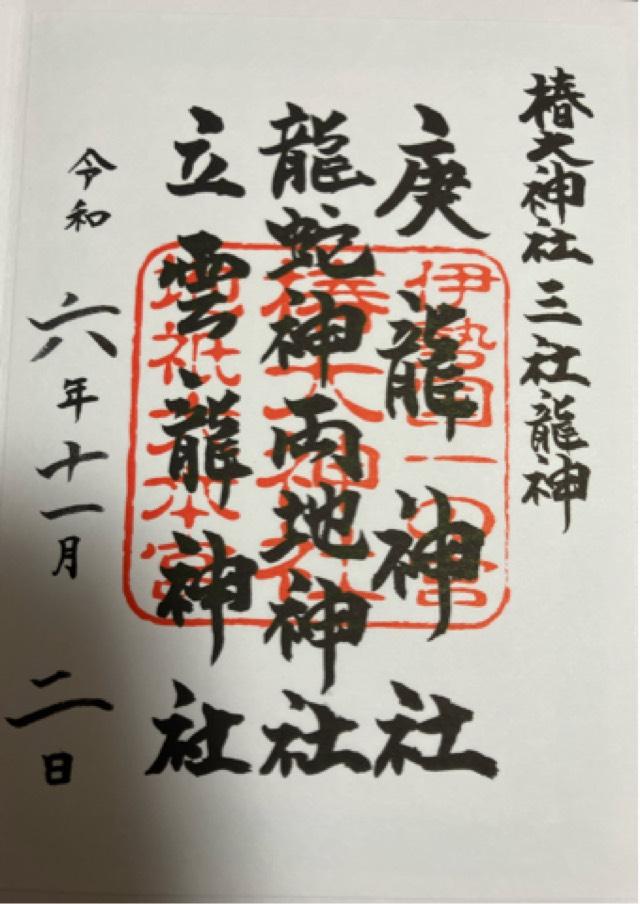 椿大神社三社龍神
庚龍神社
龍蛇神両地神社
立雲龍神社
令和六年十一月二日
伊勢国一の宮
椿大神社
地祇大本宮